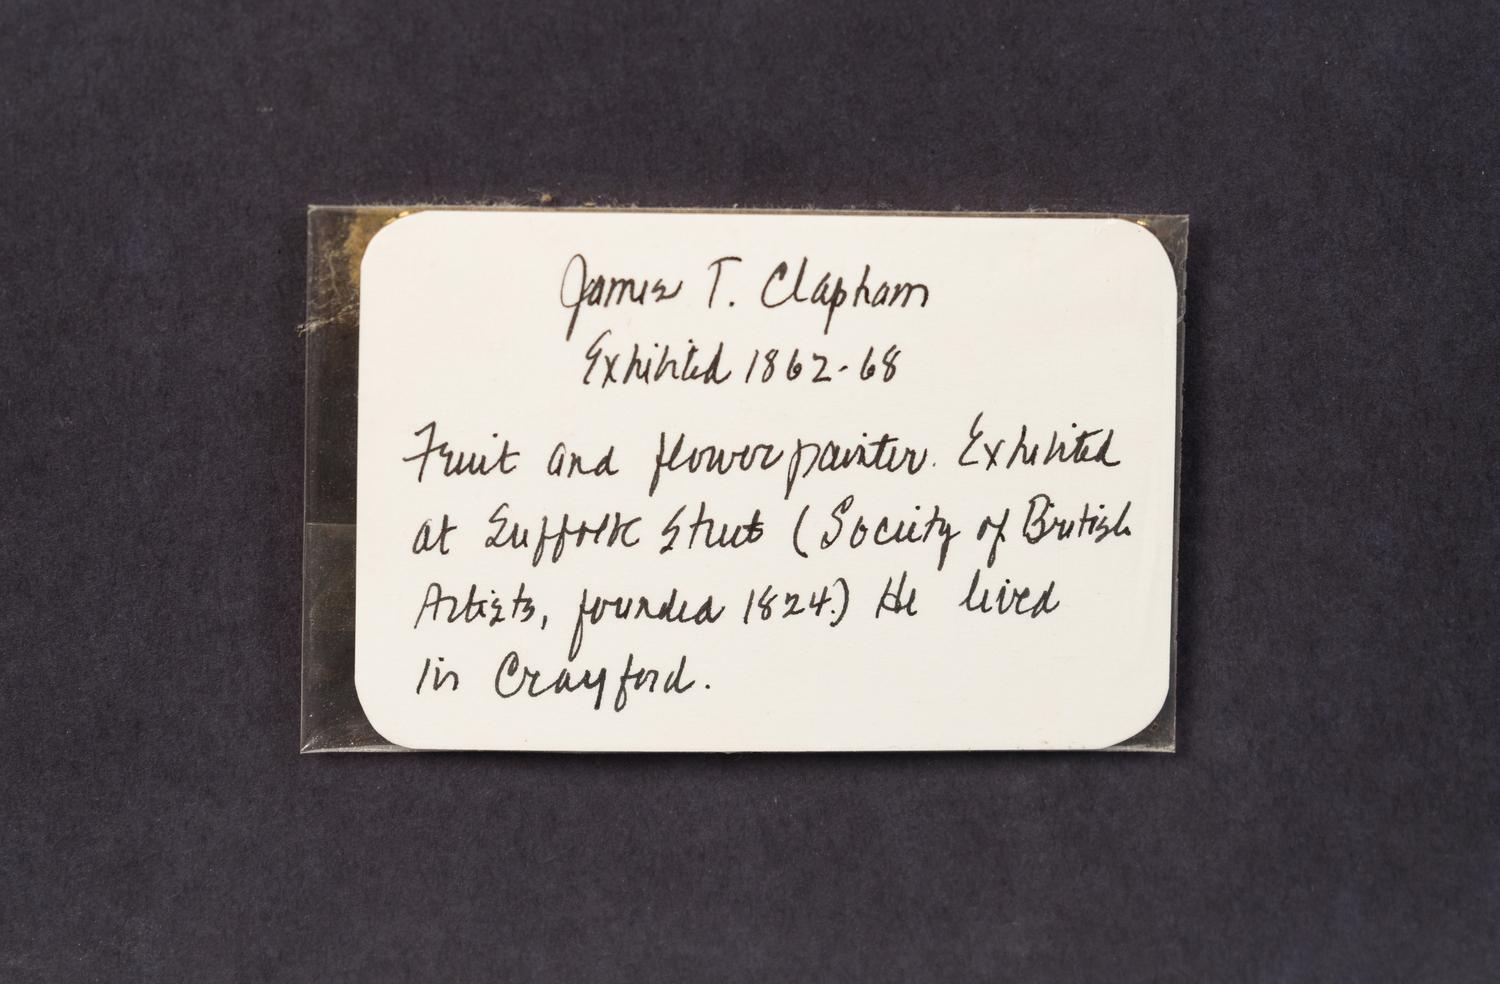 James T. Clapham
Exhibited 1862-68
Fruit and flower painter. Exhibited
at Suffolk Street (Society of British
Artists, founded 1824.) He lived
in Crayford.